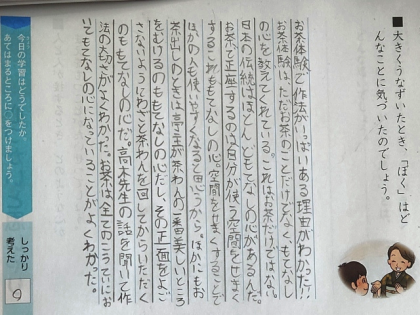 大きくうなずいたとき、「ぼく」はど
んなことに気づいたのでしょう。
お茶体験で作法がいっぱいある理由がわかった!!
お茶体験は、ただお茶のことだけでなく、もてなし
の心を教えてくれている。これはお茶だけではない。
日本の伝統はほとんどもてなしの心があるんだ。
お茶で正座するのは自分が使う空間をせまく
することもてなしの心。空間をせまくすることで
ほかの人も使いやすくなると思うから。ほかにもお
茶出しのときは亭主が茶わんの一番美しいところ
をむけるのももてなしの心だし、その正面をよご
さないようにわざと茶わんを回してからいただく
のももてなしの心だ。高木先生の話を聞いて作
法の大切さがよくわかった。お茶は全てのこうていにお
いてもてなしの心になっていることがよくわかった。
今日の学習はどうでしたか。
あてはまるところに○をつけましょう。
しっかり
考えた